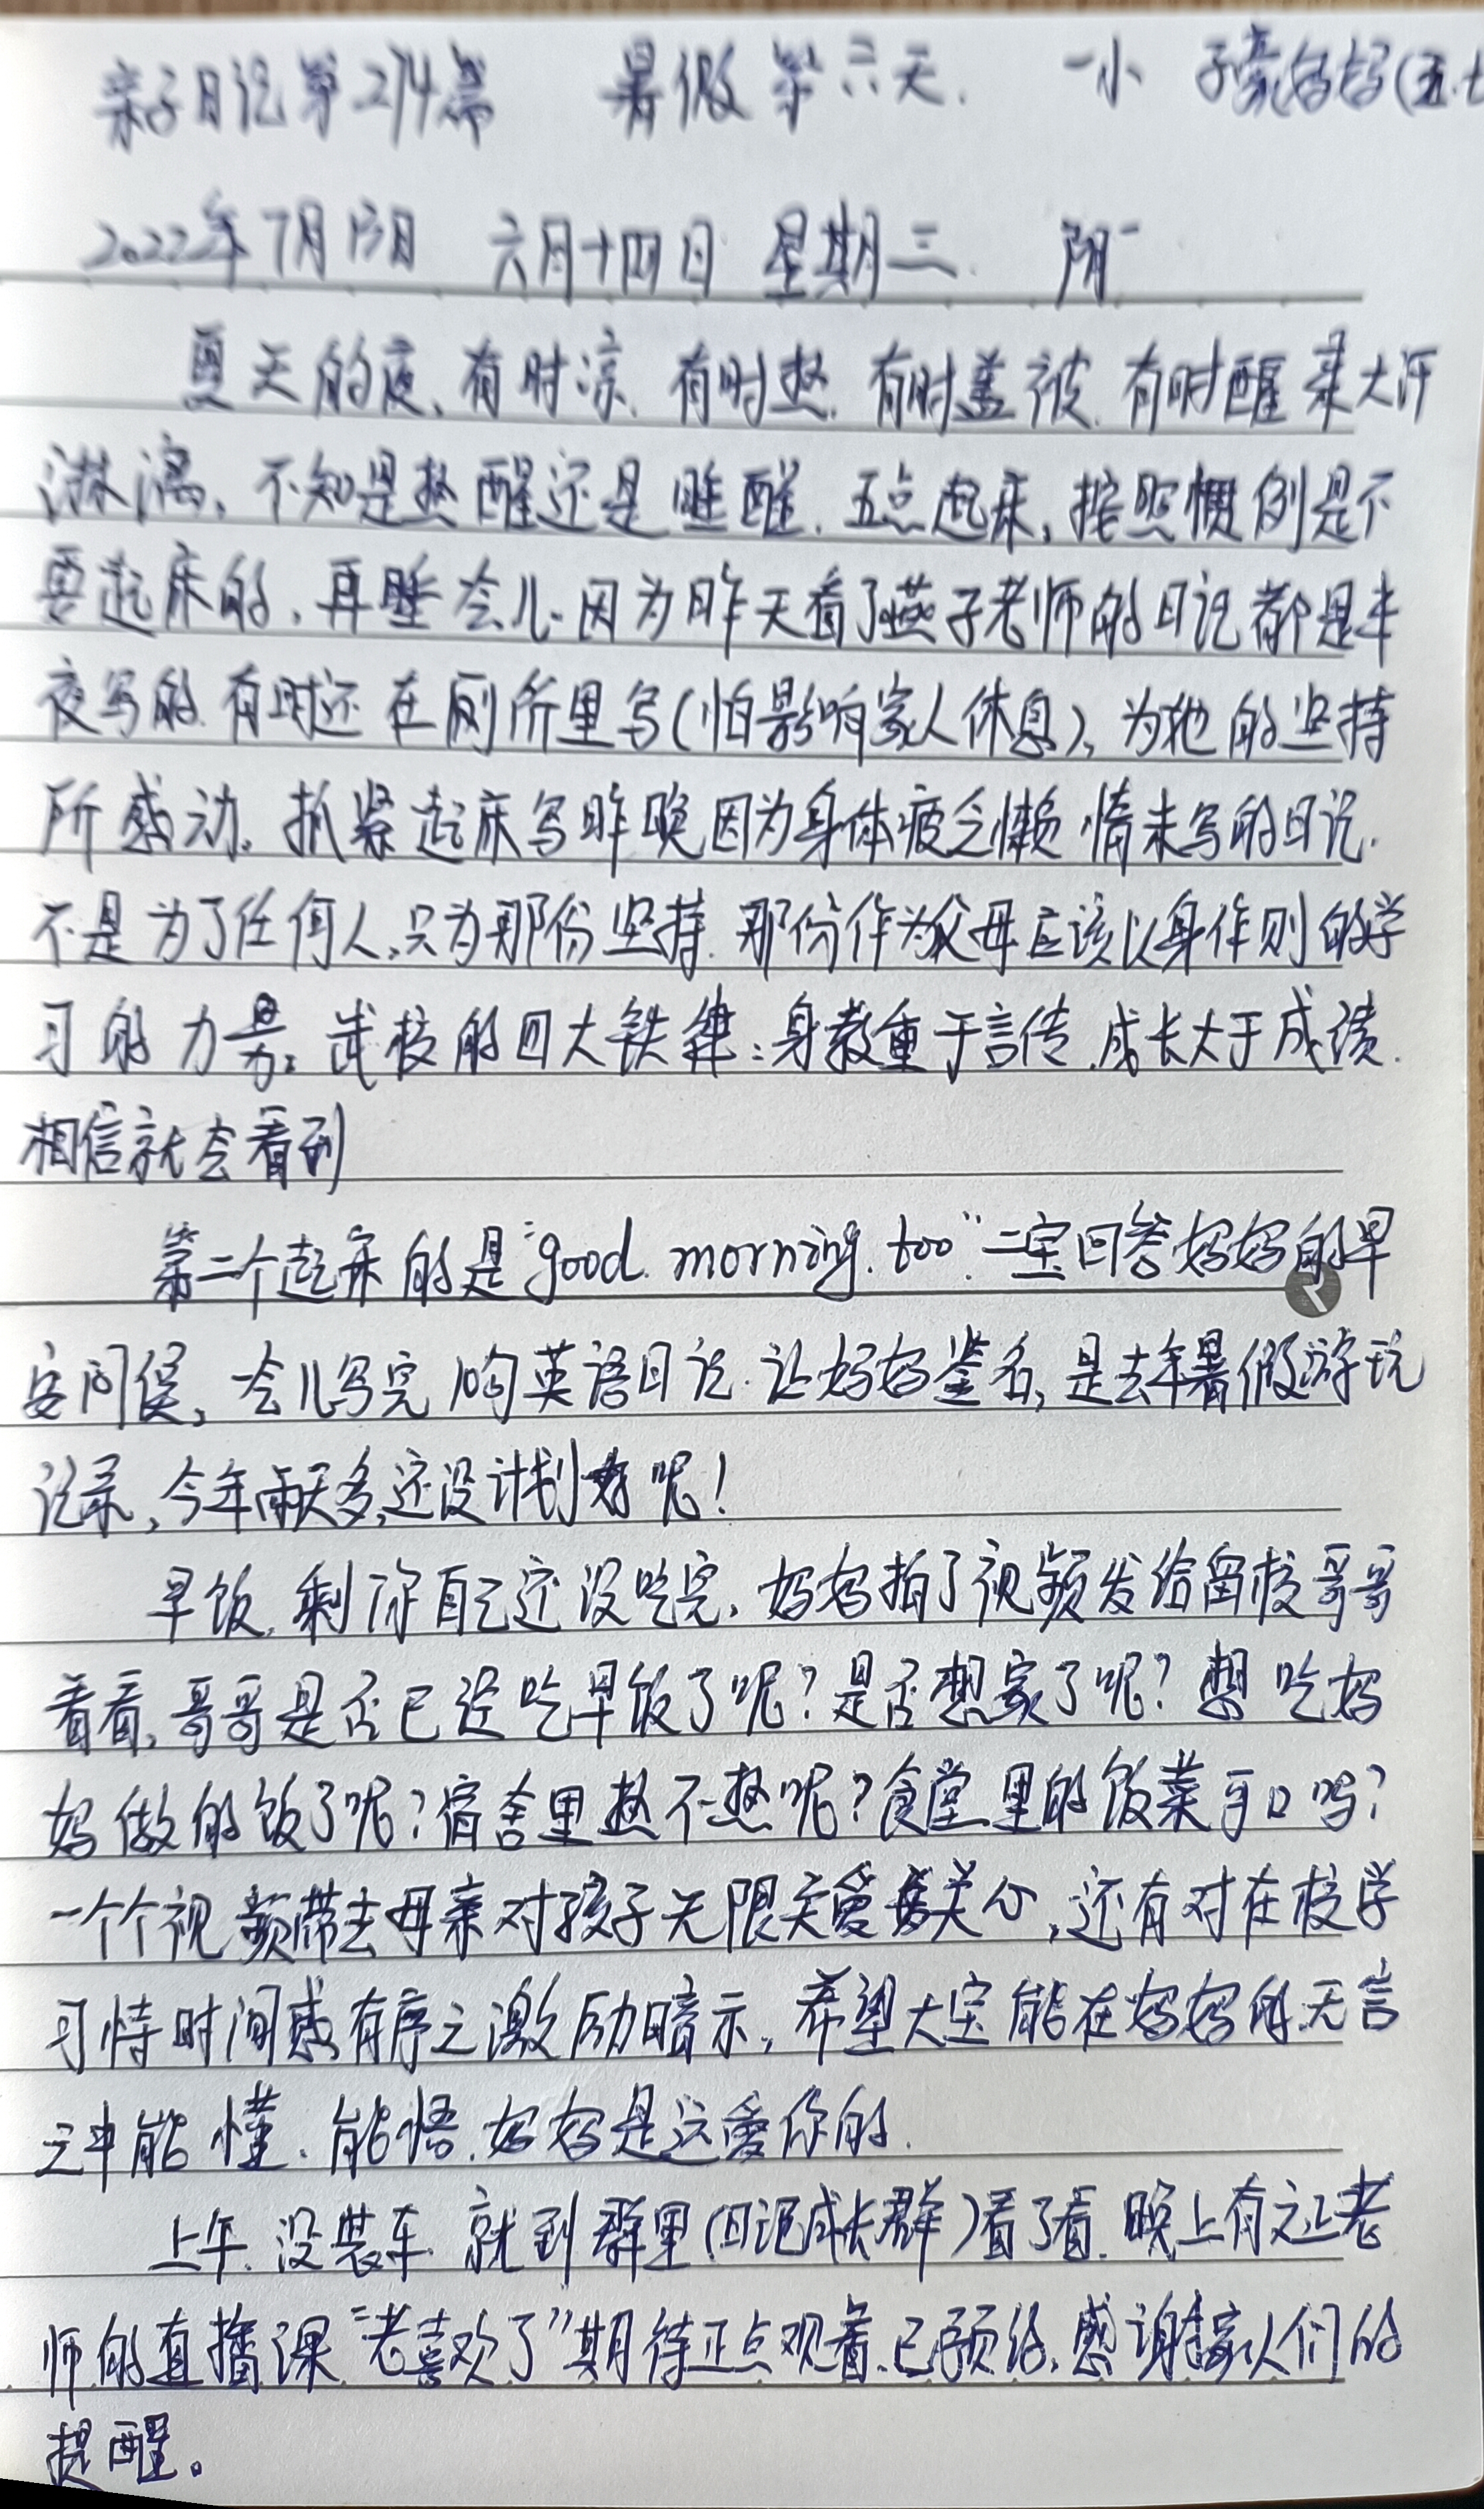 亲子日记第274篇 暑假第六天. 一小 子豪妈妈(五.七
2022年7月13日 六月十四日 星期三. 阴
夏天的夜、有时凉.有时热.有时盖被.有时醒来大汗
淋漓、不知是热醒还是睡醒.五点起来,按照惯例是不
要起床的,再睡会儿.因为昨天看了燕子老师的日记都是半
夜写的.有时还在厕所里写(怕影响家人休息),为她的坚持
所感动.抓紧起床写昨晚因为身体疲乏懒惰未写的日记.
不是为了任何人,只为那份坚持.那份作为父母应该以身作则的学
习的力量。我校的四大铁律:身教重于言传.成长大于成绩.
相信就会看到
第二个起来的是"good morning.too".二宝回答妈妈的早
安问侯,一会儿写完10句英语日记.让妈妈鉴名,是去年暑假游玩
记录,今年雨天多,还没计划好呢!
早饭,剩你自己还没吃完,妈妈拍了视频发给留校哥哥
看看,哥哥是否已经吃早饭了呢?是否想家了呢?想吃妈
妈做的饭了呢?宿舍里热不热呢?食堂里的饭菜可口吗?
一个个视频带去母亲对孩子无限关爱关心,还有对在校学
习恃时间感有序之激励暗示,希望大宝能在妈妈的无言
之中能懂、能悟.妈妈是这爱你的.
上午.没装车.就到群里(日记成长群)看了看.晚上有文正老
师的直播课"老喜欢了"期待正点观看.已预约,感谢家人们的
提醒。